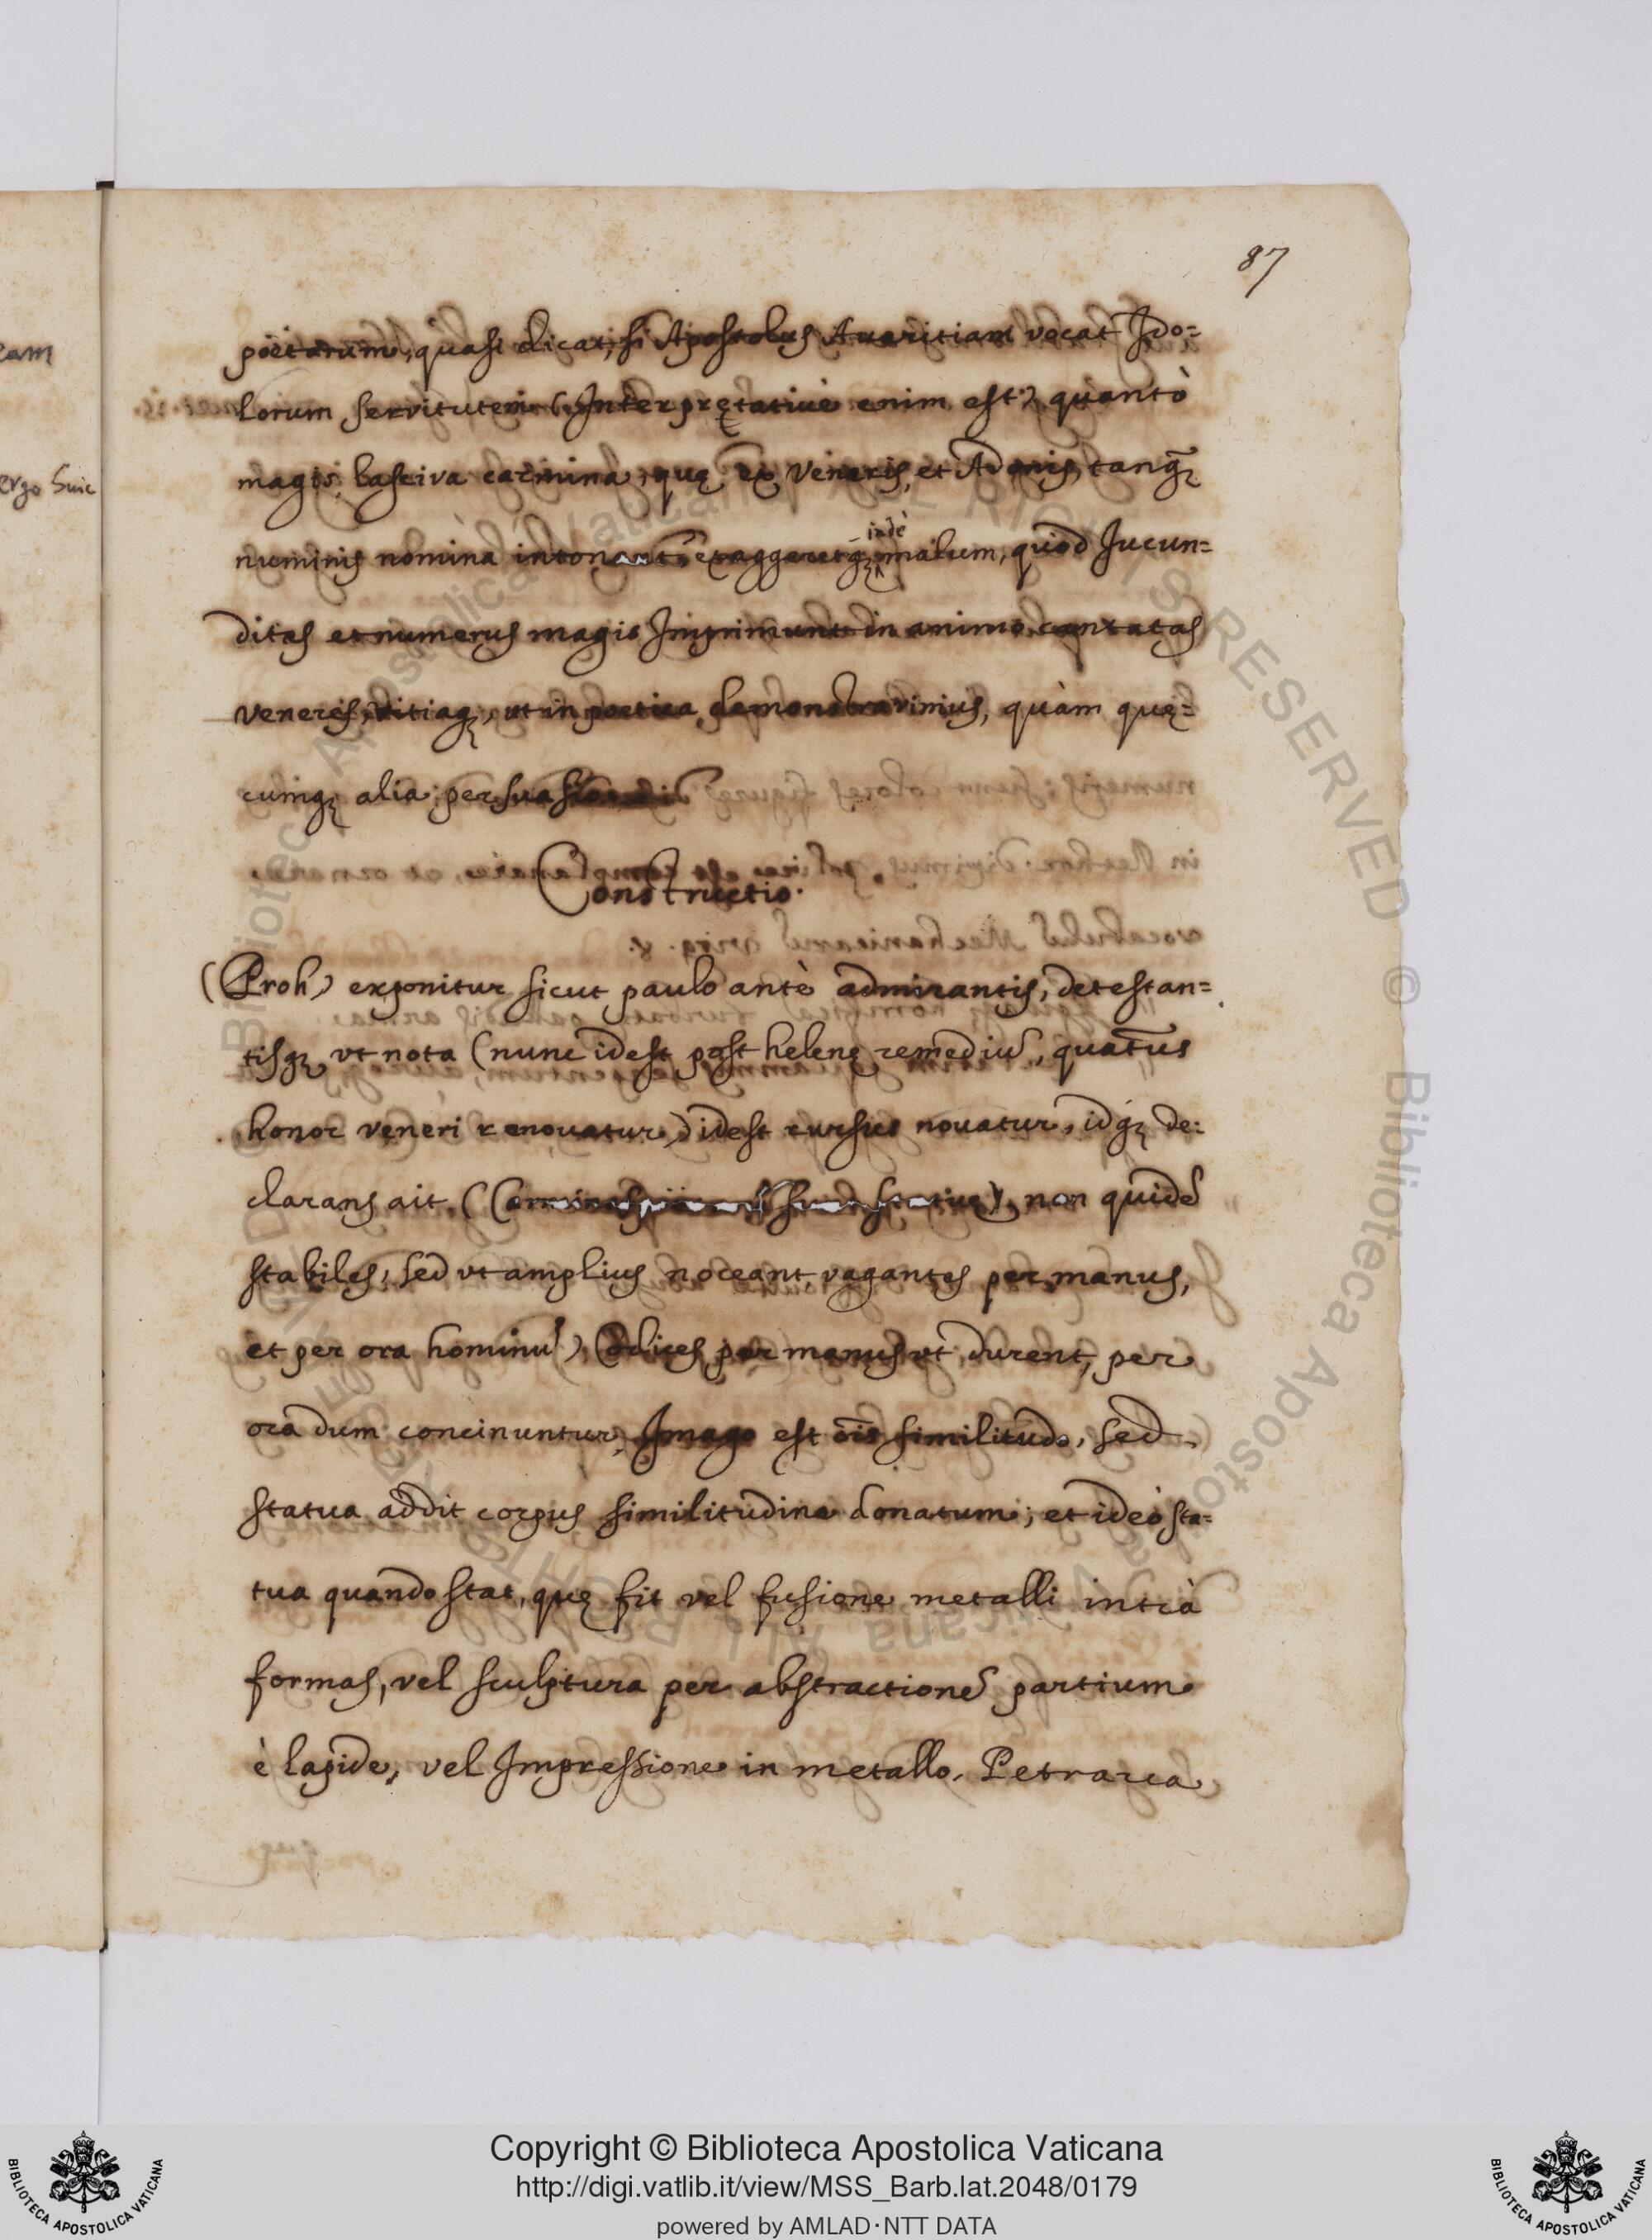 87
poëtarum, quasi dicat, si Apostolus Auaritiam vocat Ido=
lorum servitutem (Interpretatiuè enim est) quantò
magis lasciva carmina, quę ex Veneris, et Adonis, tanqȝ
numinis nomina intonant, exaggeretqȝ indè malum, quod Jucun=
ditas et numerus magis Imprimunt in animo cantatas
veneres, vitiaqȝ, ut in poetica demonstravimus, quàm quę=
cumqȝ alia
Constructio.
(Proh) exponitur sicut paulo antè admirantis, detestan=
tisqȝ vt nota (nunc idest post helenę remediũ, quatenus
honor veneri renouatur) idest rursus nouatur, idqȝ de:
clarans ait, (Carmina non quidẽ
stabiles, sed vt amplius noceant vagantes per manus,
et per ora hominũ) Codices per manus vt durent, per
ora dum concinuntur, Imago est oīs similitudo, sed
statua addit corpus similitudine donatum; et ideò sta=
tua quando stat, quę fit vel fusione metalli intrà
formas, vel sculptura per abstractionẽ partium
è lapide, vel Impressione in metallo, Petrarca
eam
ergo huic
Copyright © Biblioteca Apostolica Vaticana
http://digi.vatlib.it/view/MSS_Barb.lat.2048/0179
powered by AMLAD·NTT DATA
BIBLIOTECA APOSTOLICA VATICANA
BIBLIOTECA APOSTOLICA VATICANA